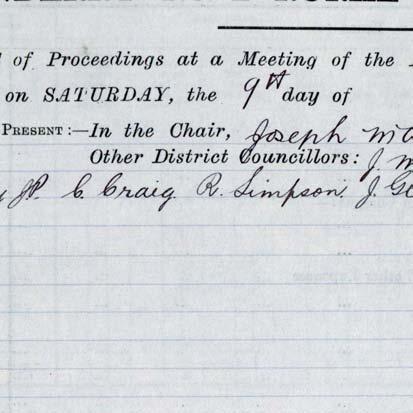 of Proceedings at a Meeting of the
on SATURDAY, the 9th day of
PRESENT:—In the Chair, Joseph
Other District Councillors: J.
JP. C. Craig. R. Simpson. J.